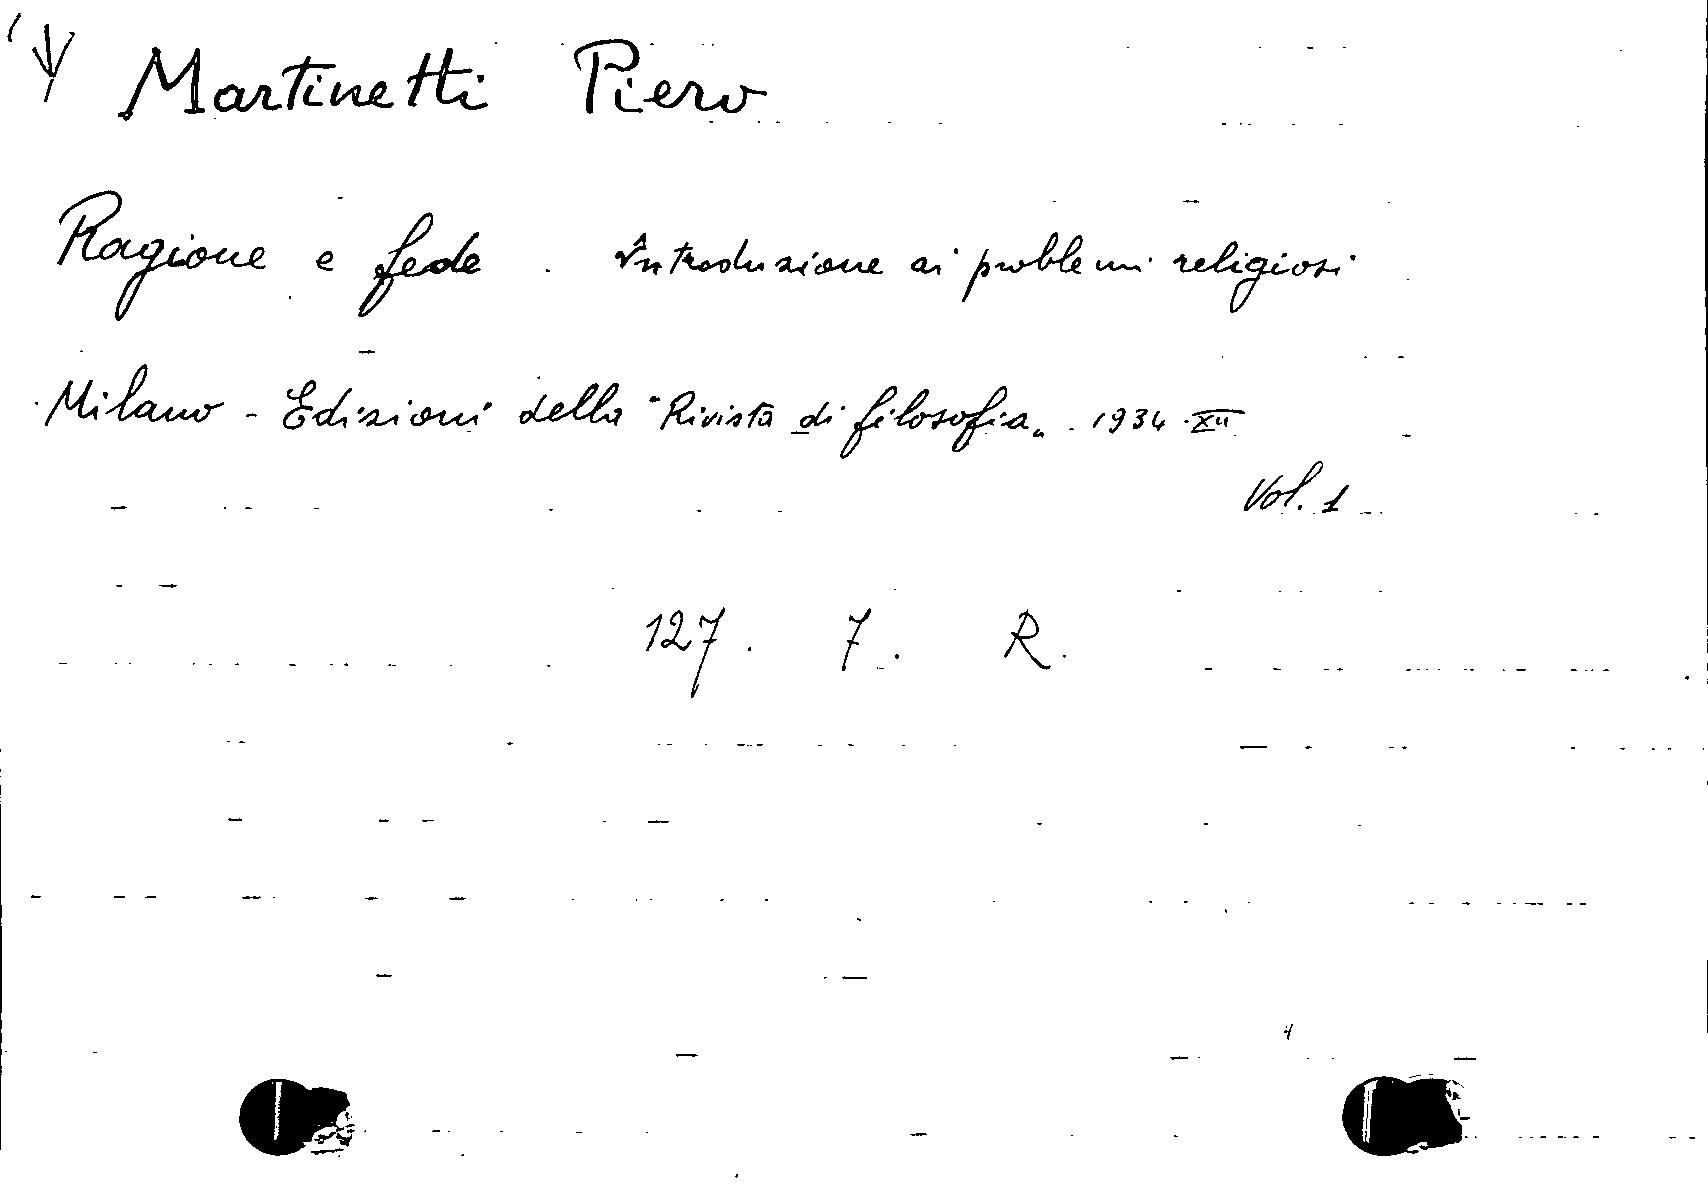 Martinetti Piero
Ragione e fede. Introduzione ai problemi religiosi
Milano - Edizioni della "Rivista di filosofia„. 1934. XII
Vol. 1
127. 7. R.